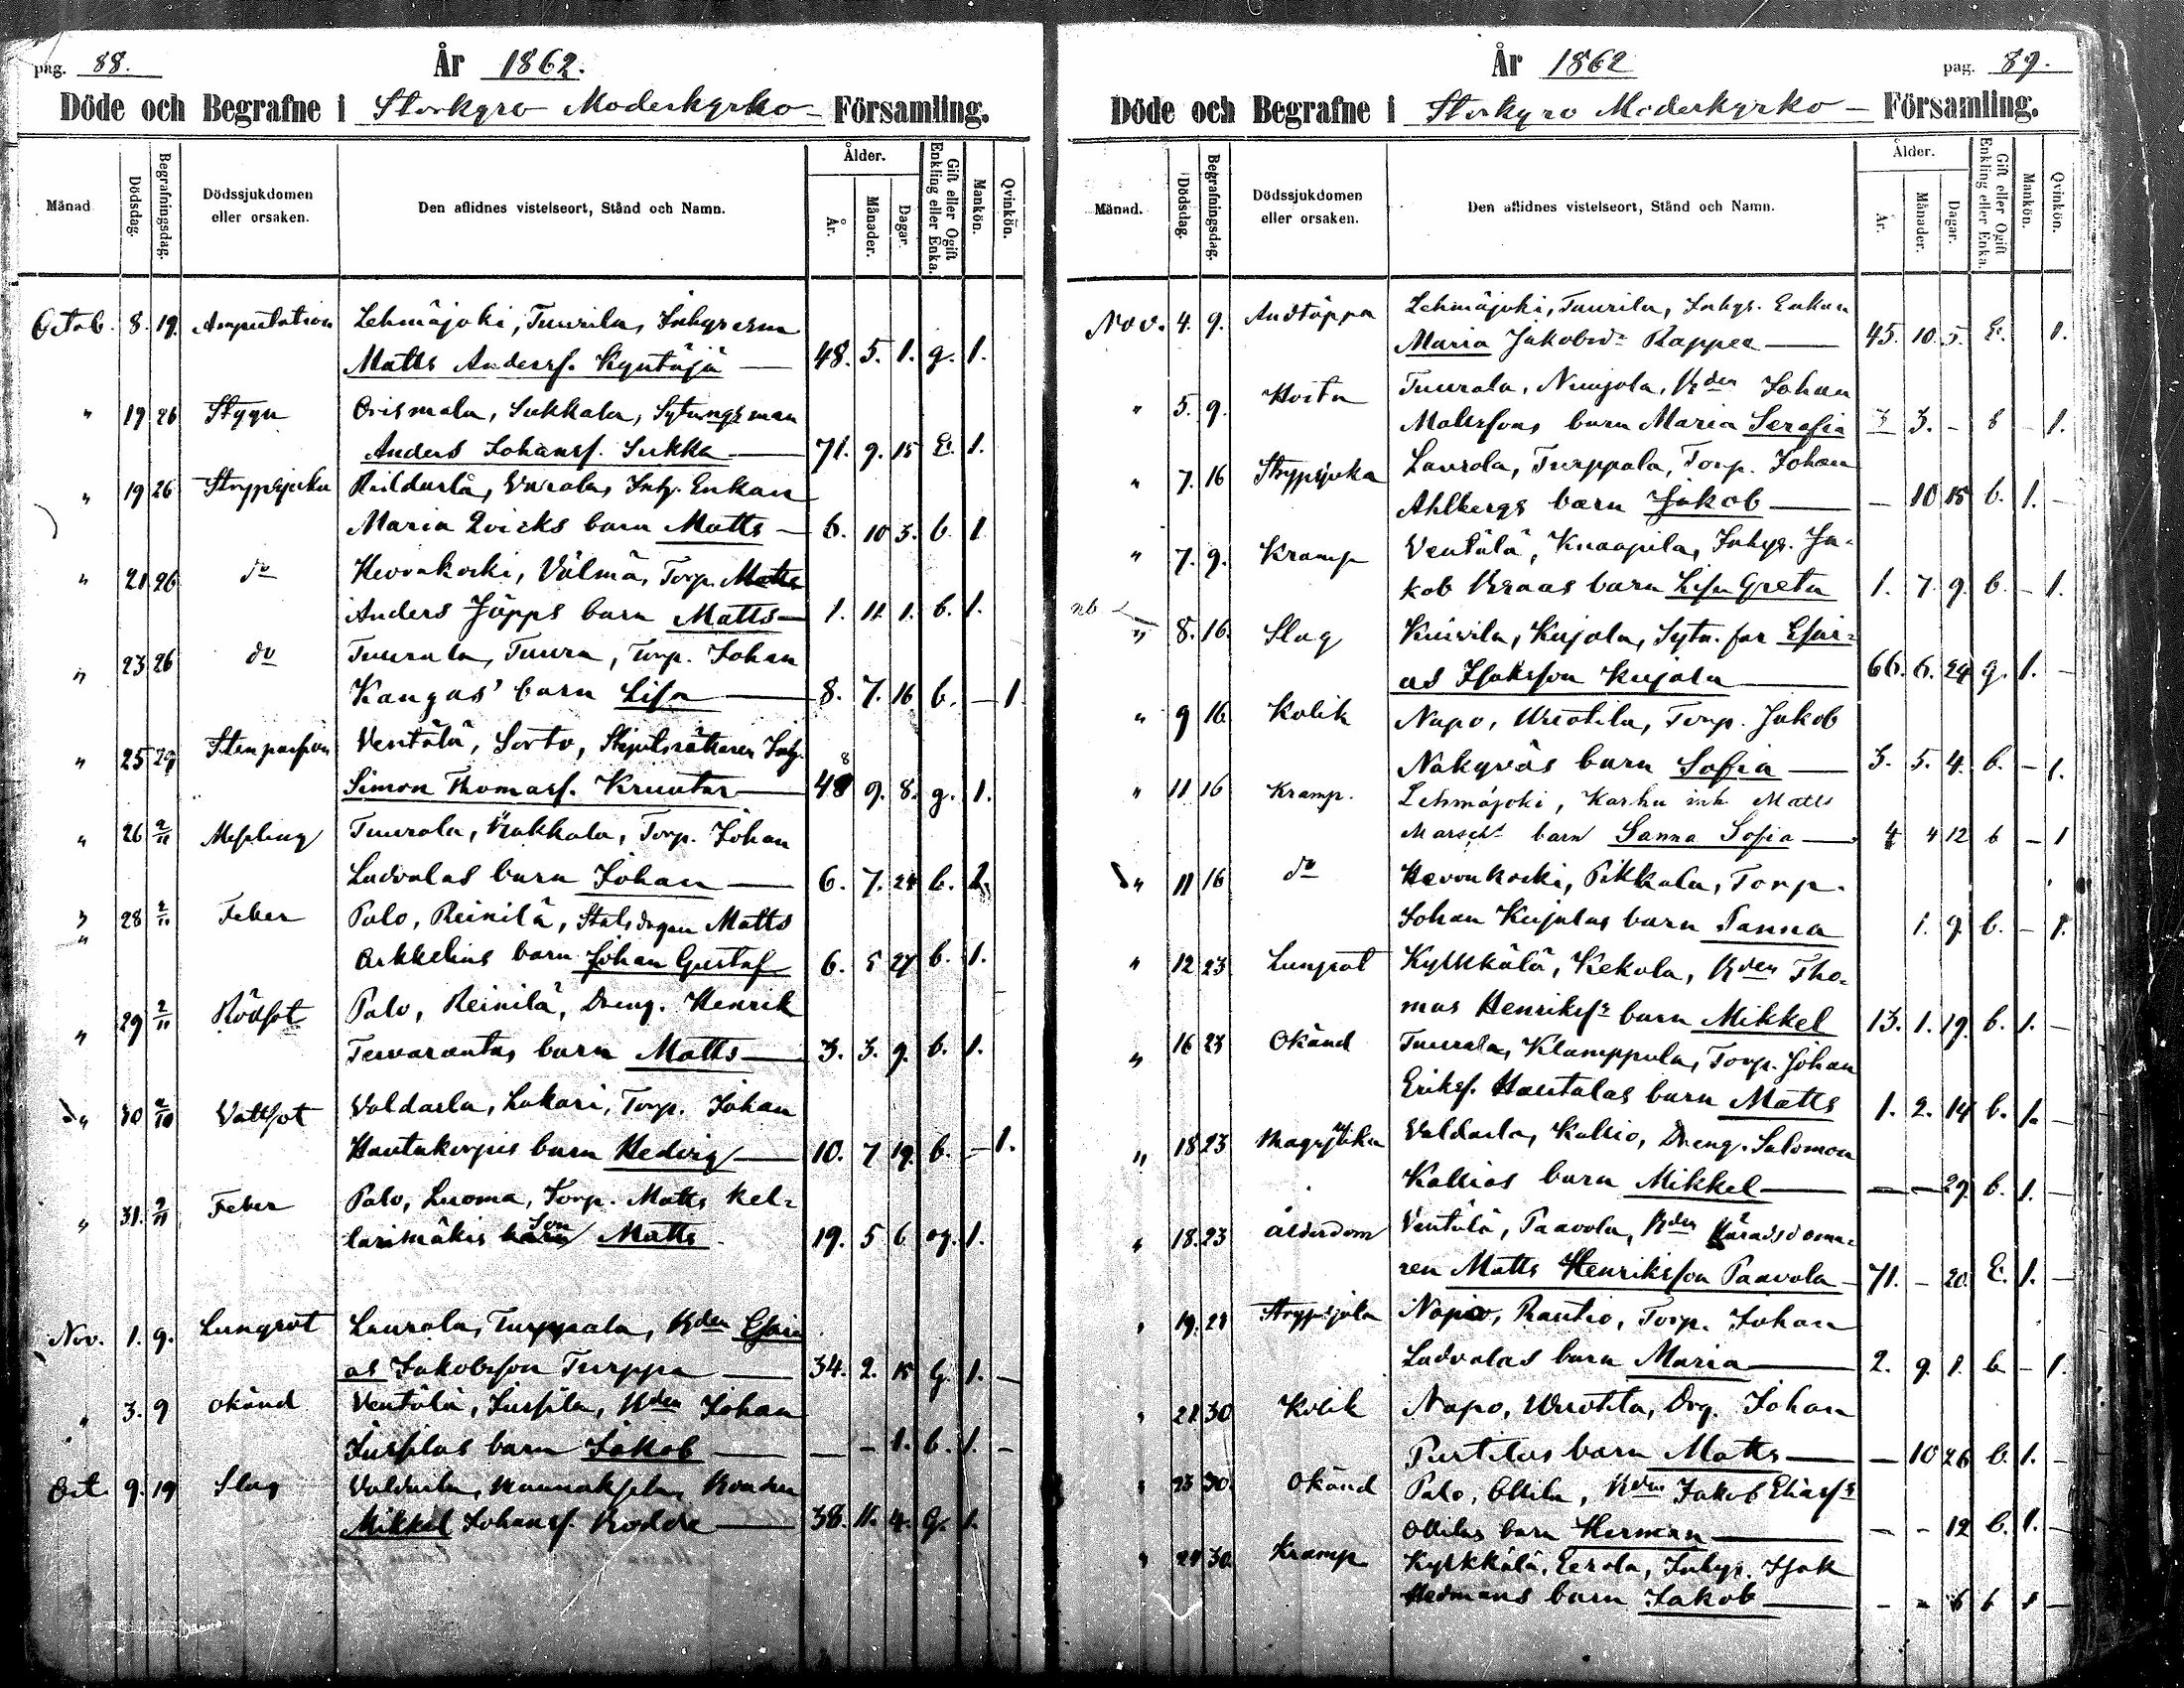 pag. 88.
År 1862.
Döde och Begrafne i Storkyro Moderkyrko- Församling.
Månad
Dödsdag.
Begrafningsdag.
Dödssjukdomen
eller orsaken.
Den aflidnes vistelseort, Stånd och Namn.
Ålder.
År.
Månader.
Dagar.
Gift eller Ogift
Enkling eller Enka.
Mankön.
Qvinkön.
Octob. 8. 19. Amputation Lehmäjoki, Tuurila, Inhysesm
Matts Andersf. Kyntäjä — 48. 5. 1. g. 1.
" 19 26 Stygn Orismala, Sukkala, Sytningsman
Anders Johansf. Sukka — 71. 9. 15 E. 1.
" 19 26 Strypsjuka Inhy. Enkan
Maria Qvicks barn Matts — 6. 10 3. b. 1
" 21 26 do Hevonkoski, Välmä, Torp. Matts
Anders Jäpps barn Matts — 1. 11. 1. b. 1.
" 23 26 do Tuurala, Tuura, Torp. Johan
Kangas' barn Lisa — 8. 7. 16. b. — 1
" 25 29 Ventälä, Sorto, Inhy.
Simon Thomasf. Kruutar — 48 9. 8. g. 1.
8
" 26 2/11 Meßling Tuurala, Torp. Johan
Ladvalas barn Johan — 6. 7. 24 b. 1.
" 28 2/11 Feber Palo, Reinilä, Matts
Orkkelins barn Johan Gustaf 6. 5 27 b. 1.
" 29 2/11 Rödsot Palo, Reinilä, Dreng. Henrik
Tervarantas barn Matts — 3. 3. 9. b. 1.
" 30 2/10 Vattsot Valdarla, Lakari, Torp. Johan
Hautakorpis barn Hedvig — 10. 7 19. b. — 1.
" 31. 2/11 Feber Palo, Luoma, Torp. Matts Kel-
larimäkis barn Son Matts 19. 5 6 og. 1.
Nov. 1. 9. Lungsot Laurola, Turppala, Bden Esai
as Jakobsson Turppa — 34. 2. 15 g. 1. —
" 3. 9 okänd Ventälä, Jussila, Bden Johan
Jussilas barn Jakob — — — 1. b. 1. —
Oct. 9. 19 Slag Valdarla, Bonden
Mikkel Johansf. — 38. 11. 4. g. 1.
År 1862
pag. 89.
Döde och Begrafne i Storkyro Moderkyrko — Församling.
Månad.
Dödsdag.
Begrafningsdag.
Dödssjukdomen
eller orsaken.
Den aflidnes vistelseort, Stånd och Namn.
Ålder.
År.
Månader.
Dagar.
Gift eller Ogift
Enkling eller Enka.
Mankön.
Qvinkön.
Nov. 4. 9. Andtäppa Lehmäjoki, Tuurila, Inhys. Enkan
Maria Jakobsdr Rappea — 45. 10. 5. E. 1.
" 5. 9. Hosta Tuurala, Nuujola, Bden Johan
Mattssons barn Maria Serafia 3 3. - b - 1.
" 7. 16 Strypsjuka Laurola, Turppala, Torp. Johan
Ahlbergs barn Jakob — — 10 15 b. 1. —
" 7. 9. Kramp Ventälä, Knaapila, Inhys. Ja-
kob Braas barn Lisa Greta 1. 7. 9. b. — 1.
nb
" 8. 16. Slag Kuivila, Kujala, Sytn. far Esai-
as Isaksson Kujala — 66. 6. 24 g. 1. —
" 9 16 Kolik Napo, Uurotila, Torp. Jakob
Nakyväs barn Sofia — 3. 5. 4. b. — 1.
" 11 16 Kramp. Lehmäjoki, Karhu inh Matts
barn Sanna Sofia — 4 4 12 b — 1
" 11 16 do Hevonkoski, Pikkala, Torp.
Johan Kujalas barn Sanna 1. 9 b. — 1.
" 12 23 Lungsot Kylkkälä, Kekola, Bden Tho-
mas Henriksfs barn Mikkel 13. 1. 19. b. 1. —
" 16 23 Okänd Tuurala, Klamppula, Torp. Johan
Eriksf. Hautalas barn Matts 1. 2. 14 b. 1. —
" 18 23 Magsjuka Valdarla, Kallio, Dreng. Salomon
Kallios barn Mikkel — — — 29. b. 1. —
" 18. 23 Ålderdom Ventälä, Paavola, Bden Häradsdoma-
ren Matts Henriksson Paavola — 71. - 20. E. 1. —
" 19. 24 Strypsjuka Napo, Rautio, Torp. Johan
Ladvalas barn Maria — 2. 9. 1. b — 1.
" 21 30 Kolik Napo, Uurotila, Drg. Johan
Purtilas barn Matts — — 10 26 b. 1. —
" 23 30. Okänd Palo, Ollila, Bden Jakob Eliasfs
Ollilas barn Herman — — - 12 b. 1. —
" 24 30. Kramp Kylkkälä, Eerola, Inhys. Isak
Hedmans barn Jakob — - - 6 b 1 —